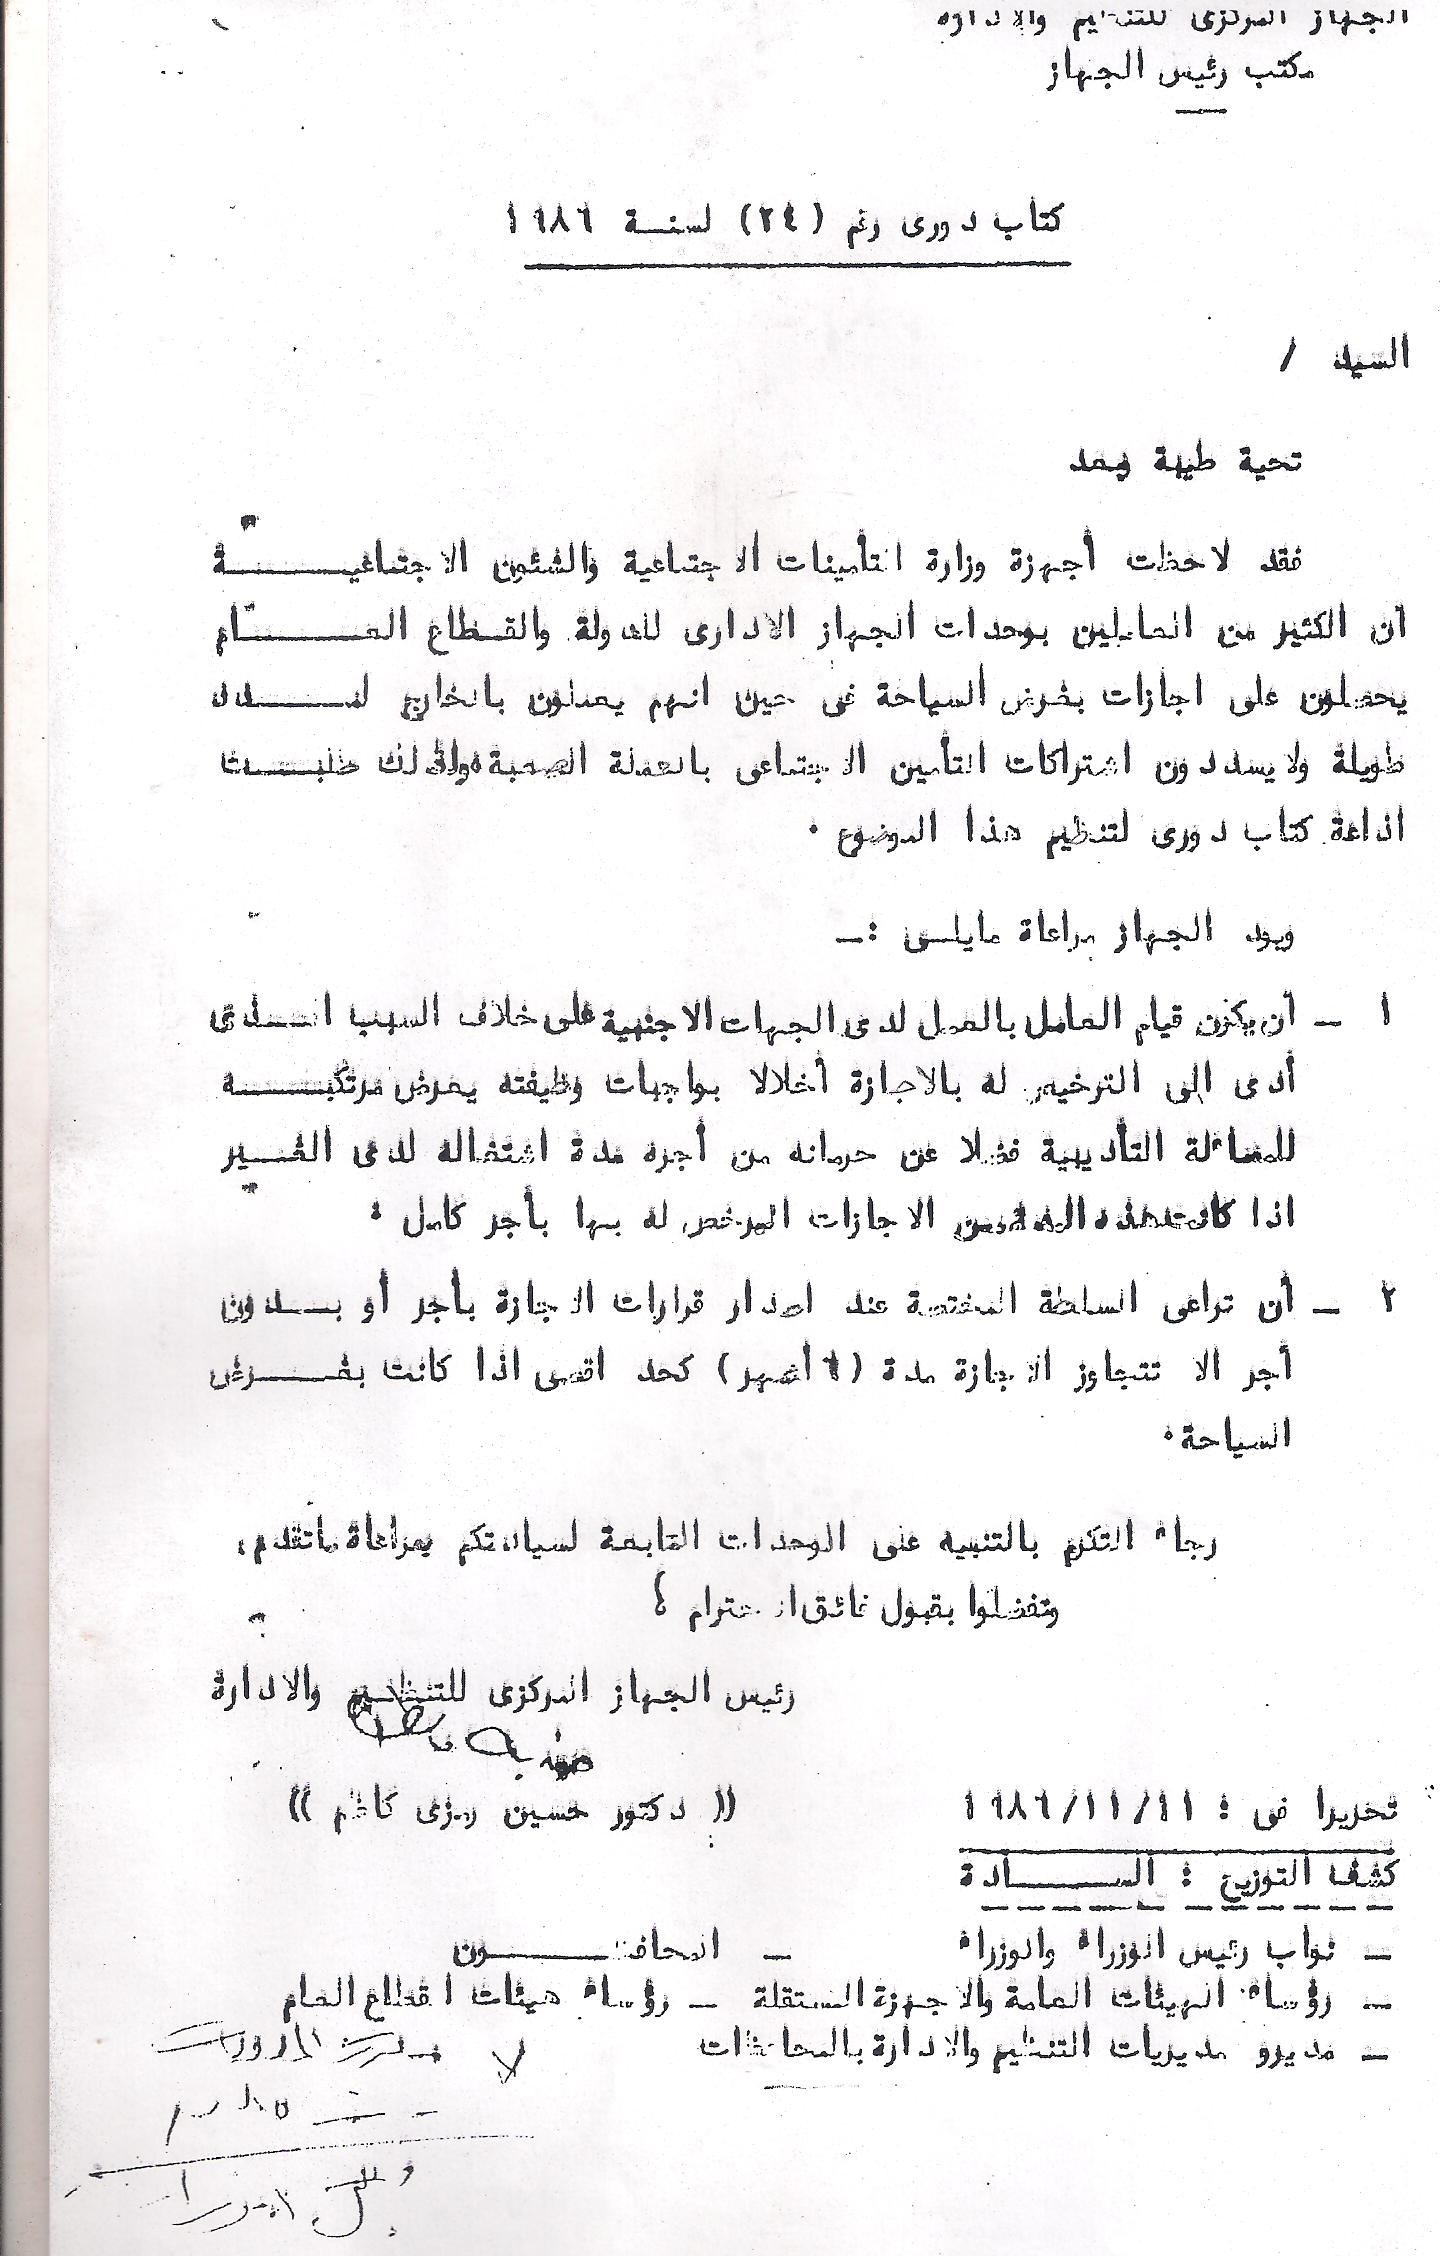 الجهاز المركزى للتنظيم والادارة
مكتب رئيس الجهاز
كتاب دورى رقم (٢٤) لسنة ١٩٨٦
السيد /
تحية طيبة وبعد
فقد لاحظت أجهزة وزارة التأمينات الاجتماعية والشئون الاجتماعية
أن الكثير من العاملين بوحدات الجهاز الادارى للدولة والقطاع العام
يحصلون على اجازات بغرض السياحة فى حين انهم يعملون بالخارج لمدد
طويلة ولايسددون اشتراكات التأمين الاجتماعى بالعملة الصعبة ولذلك طلبت
اذاعة كتاب دورى لتنظيم هذا الموضوع ٠
ويود الجهاز مراعاة مايلى :ـ
١ ـ أن يكون قيام العامل بالعمل لدى الجهات الاجنبية على خلاف السبب الذى
أدى الى الترخيص له بالاجازة أخلالا بواجبات وظيفته يعرض مرتكبه
للمساءلة التأديبية فضلا عن حرمانه من أجره مدة اشتغاله لدى الغير
اذا كانت هذه المدة من الاجازات المرخص له بها بأجر كامل ٠
٢ ـ أن تراعى السلطة المختصة عند اصدار قرارات الاجازة بأجر أو بدون
أجر الا تتجاوز الاجازة مدة (٦ أشهر) كحد اقصى اذا كانت بغرض
السياحة ٠
رجاء التكرم بالتنبيه على الوحدات التابعة لسيادتكم بمراعاة ماتقدم ،
وتفضلوا بقبول فائق الاحترام ؛
رئيس الجهاز المركزى للتنظيم والادارة
(( دكتور حسين رمزى كاظم ))
تحريرا فى : ١٩٨٦/١١/١١
كشف التوزيع : السادة
ـ نواب رئيس الوزراء والوزراء ـ المحافظون
ـ رؤساء الهيئات العامة والاجهزة المستقلة ـ رؤساء هيئات القطاع العام
ـ مديرو مديريات التنظيم والادارة بالمحافظات